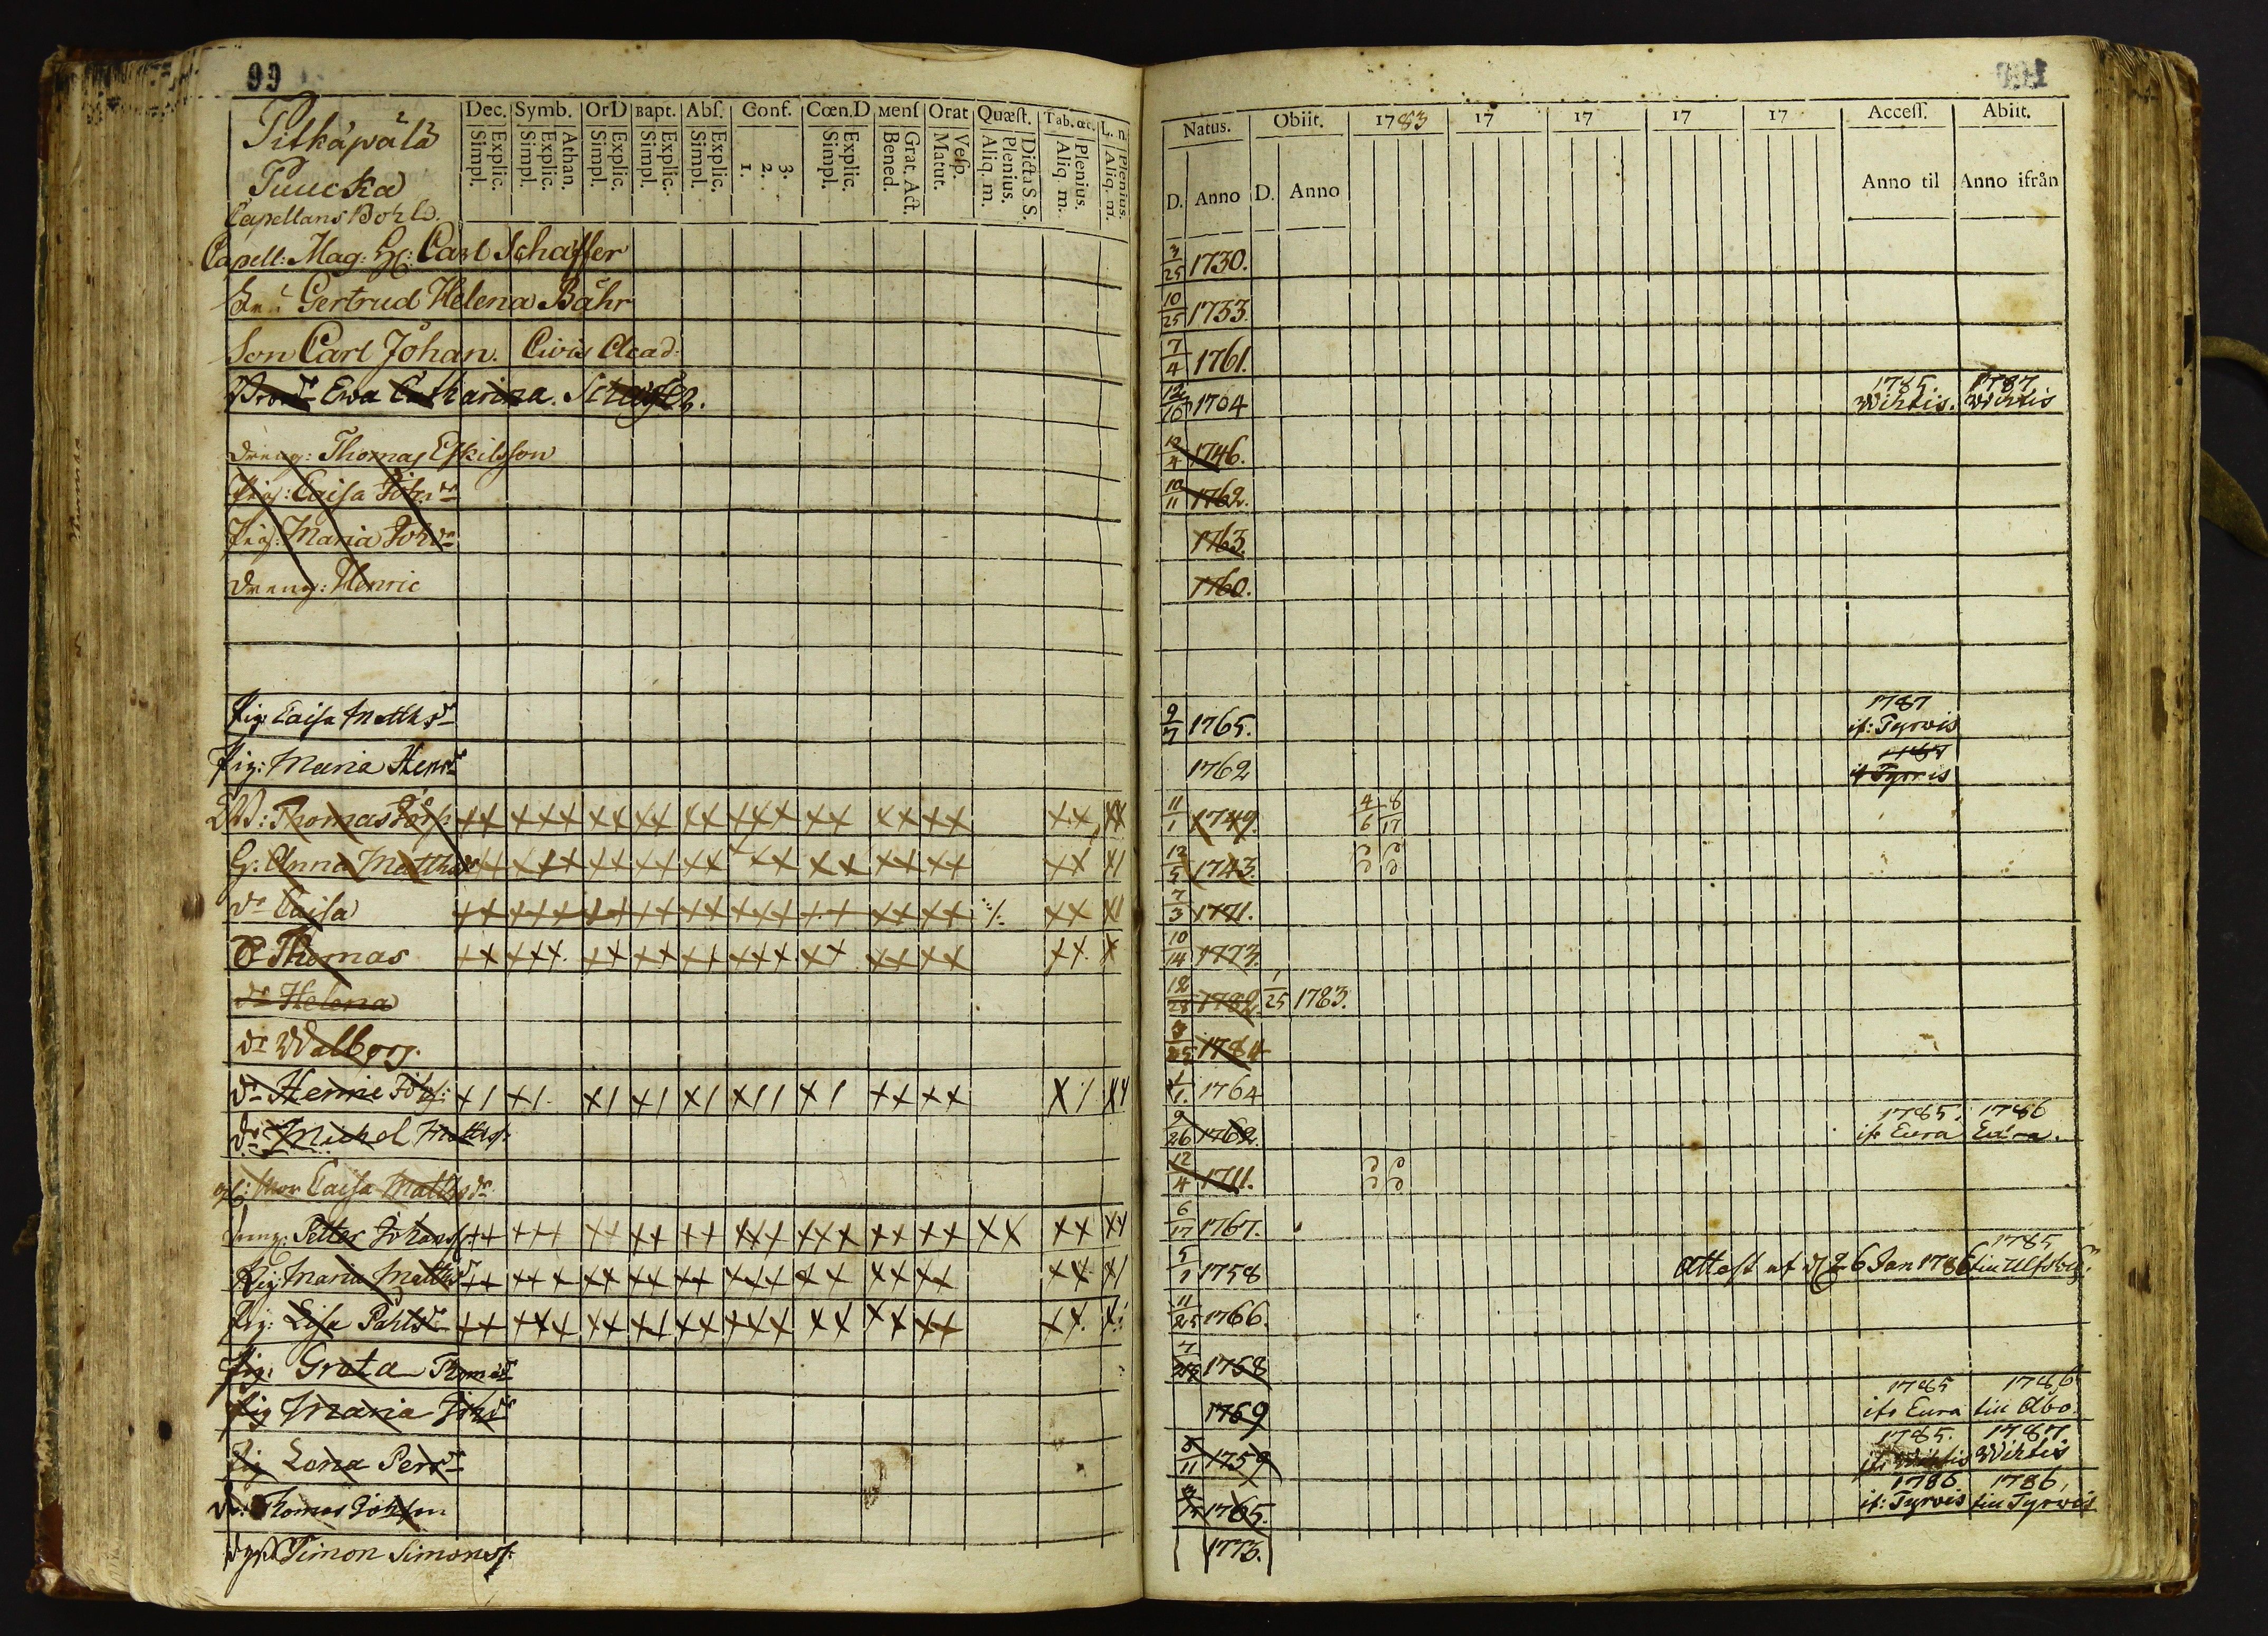 99
Pitkäpälä
Puucka
Capellans Bohld.
Dec. Symb. OrD Bapt. Abſ. Conf. Cœn.D Menſ Orat Quæſt. Tab. œc. L. n.
Explic. Simpl. Athan. Explic. Simpl. Explic. Simpl. Explic. Simpl. Explic. Simpl. 3. 2. 1. Explic. Simpl. Grat. Act. Bened. Veſp. Matut. Dicta S. S. Plenius. Aliq. m. Plenius. Aliq. m. Plenius. Aliq. m.
Natus. Obiit. 1783 17 17 17 17 Acceſſ. Abiit.
D. Anno D. Anno Anno til Anno ifrån
Capell: Mag: H: Carl Schaffer 3/25 1730.
Gertrud Helena Bähr 10/25 1733.
Son Carl Johan. Civis Acad: 7/4 1761.
Ewa Catharina. Schaffer. 1704 1785. Wihtis. 1787. Wihtis
Dreng: Thomas Eskilsson 12/4 1746.
Pig: Caisa Joh: dr 10/11 1762.
Pig: Maria Joh dr 1763.
Dreng: Henric 1760.
Pig: Caisa Matths dr 9/7 1765. 1787 if: Tyrvis
Pig: Maria Henr dr 1762 1787 if Tyrvis
Thomas Johs 11/1 1749. 4/6 8/17
H: Anna Matths dr 12/5 1743.
dr Caisa 7/3 1771.
Thomas 10/14 1773.
dr Helena 12/28 1782. 1/25 1783.
dr Walborg. 3/25 1784
Henric Johs: 1764
Michel Matths: 9/26 1762. 1785. ifr Eura 1786 Eura.
Mor Caisa Matths dr 12/4 1711.
Dreng: Petter Johanss 6/17 1767.
Pig: Maria Matths dr 5/1 1758 Attest ut d 26 Jan 1786 1785 till Ulfsby.
Pig: Lisa Påhls dr 11/25 1766.
Pig: Greta Thoms dr 1758
Pig Maria Joh dr 1769 1785 ifr Eura 1786 till Åbo.
Pig Lena Pers dr 1759 1785. ifr Wihtis 1787. Wihtis
Dr: Thomas Johsson 1765. 1786 if: Tyrvis 1786, till Tyrwis
Simon Simonss. 1773.